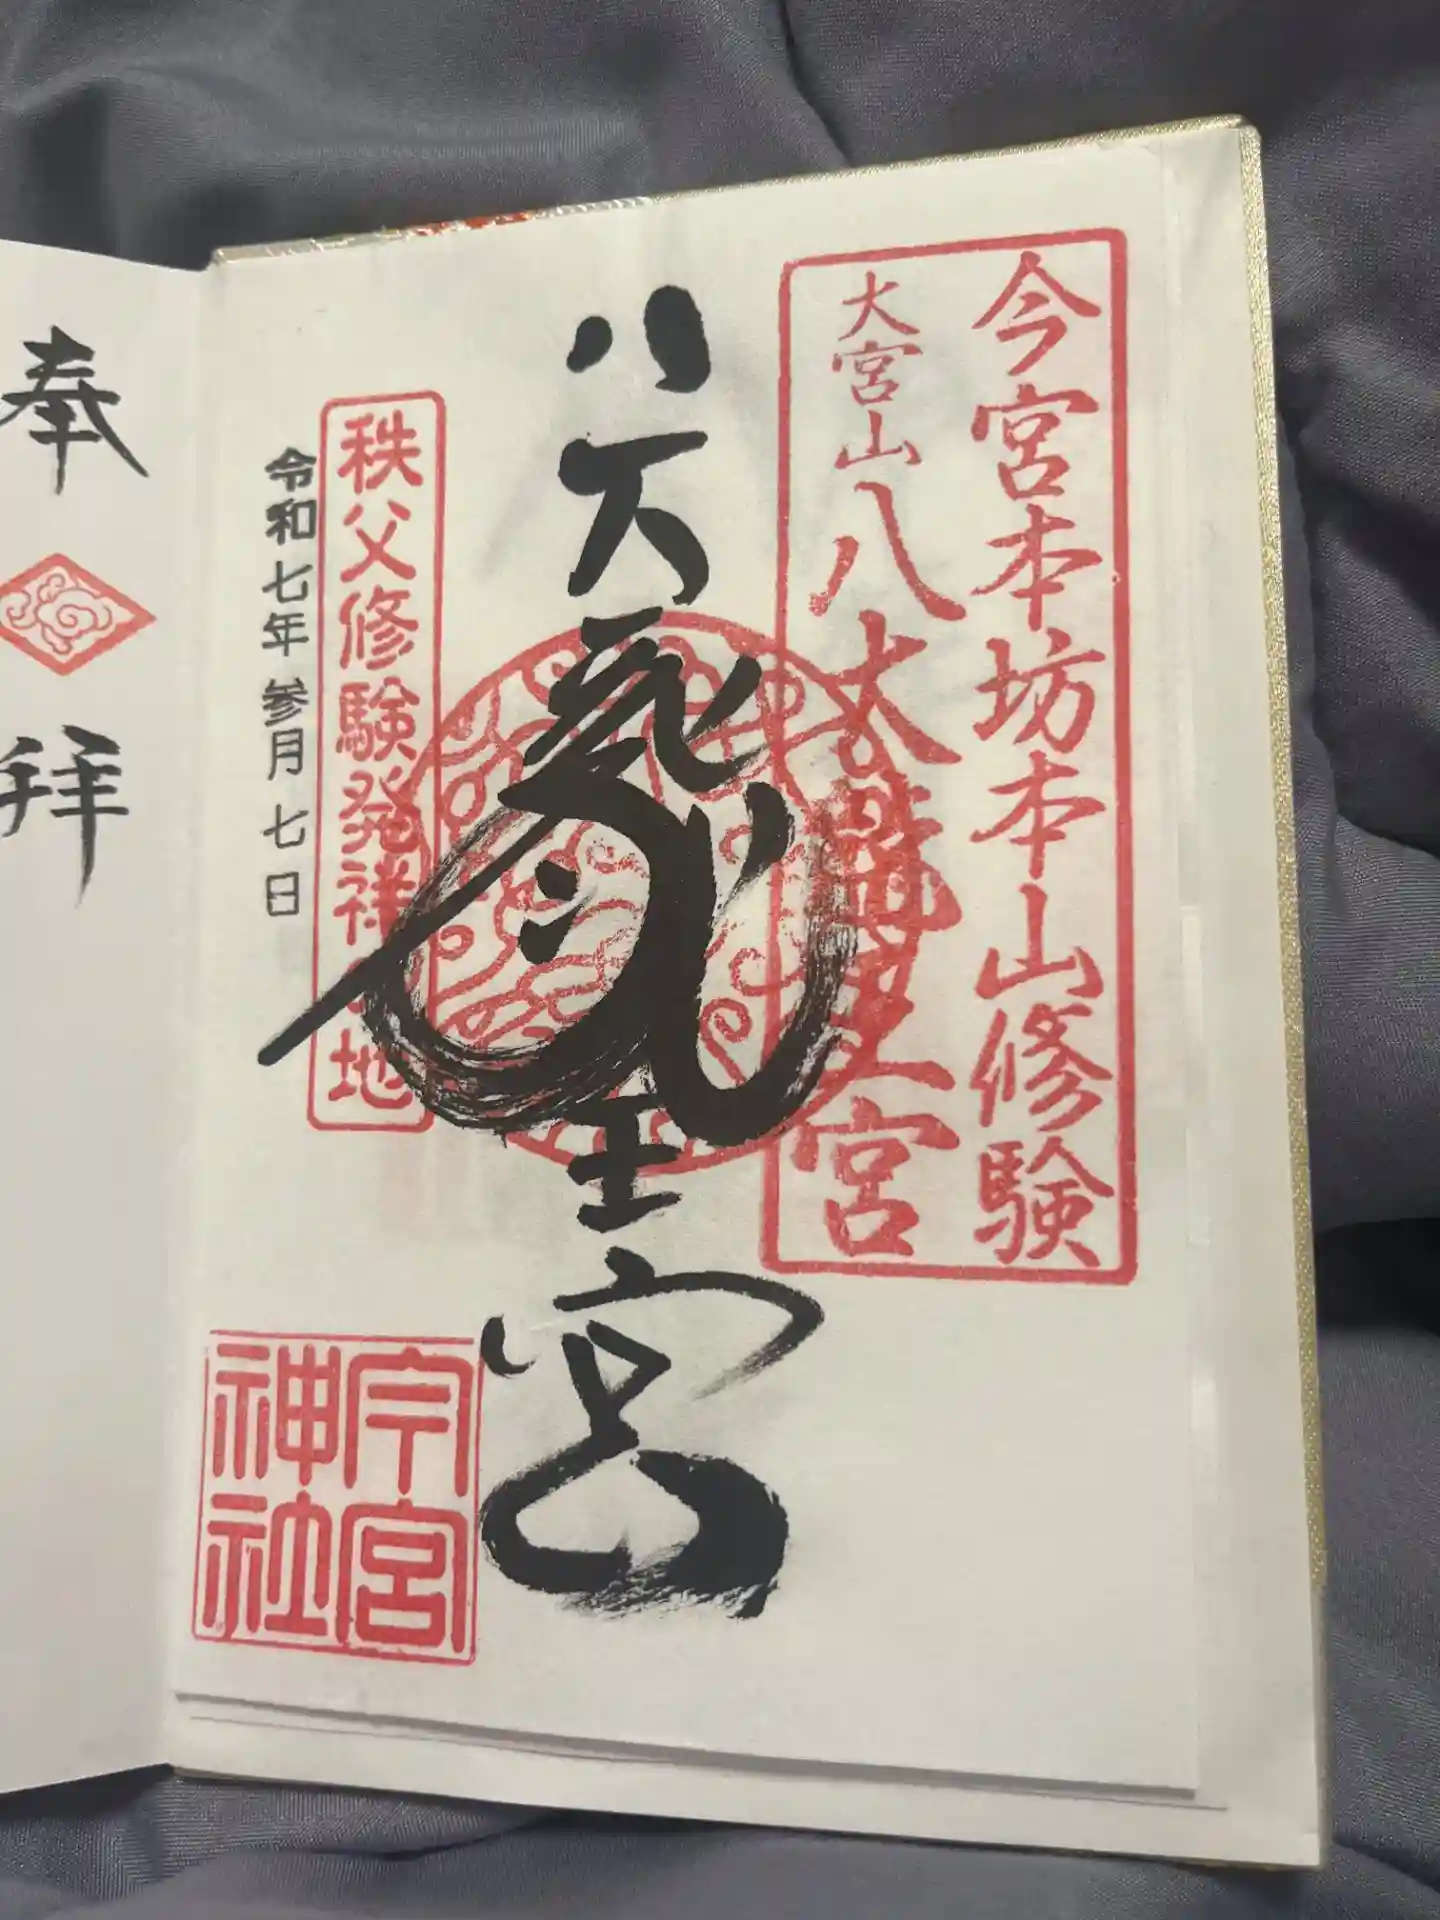 今宮本坊本山修験
大宮山八大龍王宮
八大龍王宮
秩父修験発祥之地
令和七年参月七日
今宮
神社
奉
拝